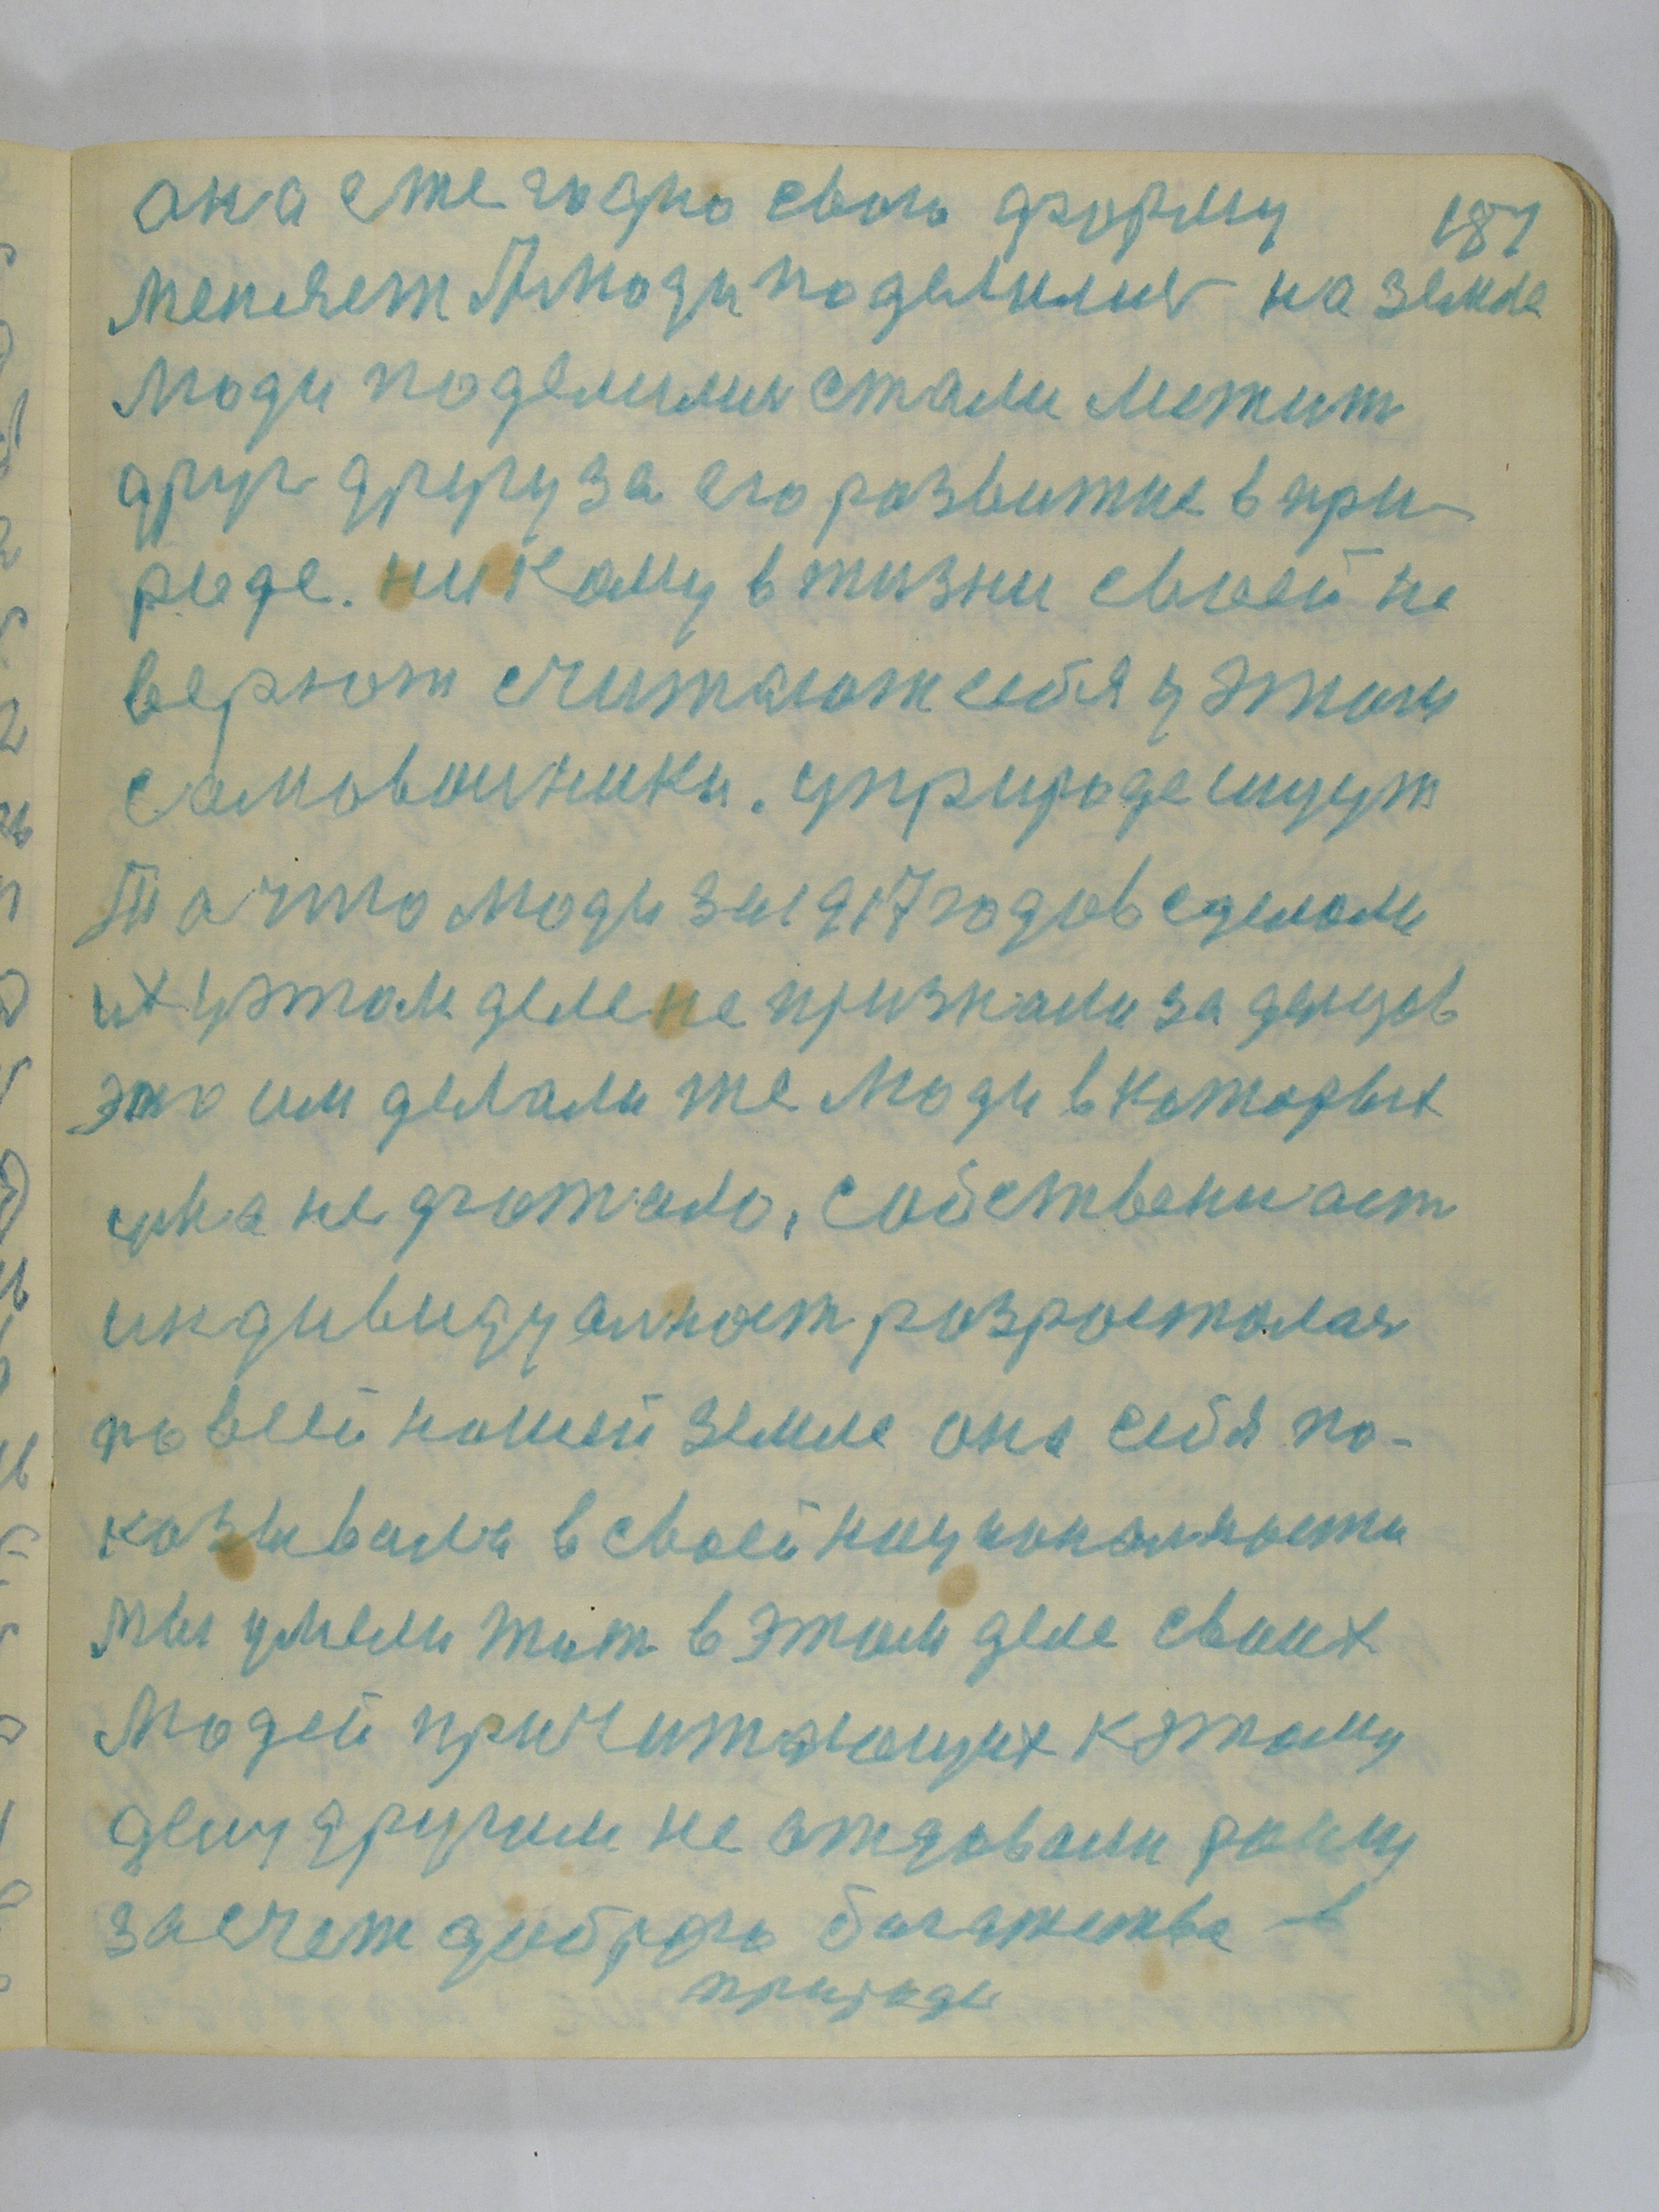 она ежегодно свою форму 187
меняет Люди поделилися на земле
люди поделилися стали мстит
друг другу за его развитие в при-
роде. никому в жизни своей не
верют считают себя у этом
самовольники. у природе ищут
Та что люди за 1917 годов сделали
их у этом деле не признали за делцов
это им делали же люди в которых
ума не хватало, собственаст
индивидуалност розросталася
по всей нашей земле она себя по-
козывала в своей национолности
мы умели жит в этом деле своих
людей причитающих к этому
делу другим не отдовали
за счет доброго богатства в
природе